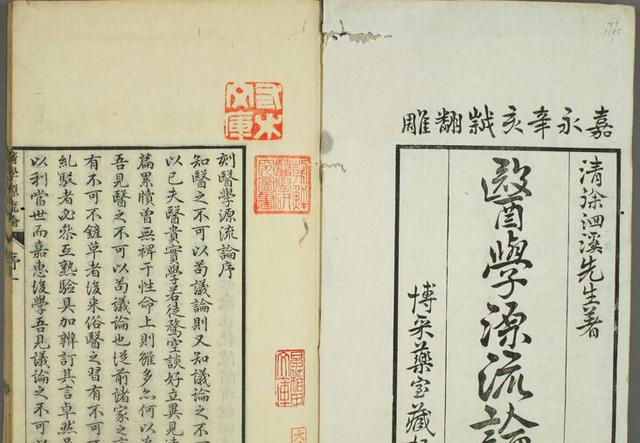 嘉永辛亥翻雕
清徐洄溪先生著
醫學源流論
博采藥室藏
木文庫
文庫
大
刻醫學源流論序
知醫之不可以苟議論則又知議論之不
以已夫醫貴實學若徒騖空談好立異見
篇累牘曾無裨于性命上則雖多亦何以
吾見醫之不可以苟議論也從前諸家之
有不可不鏟草者後来俗醫之習有不可
糺駁者必參互熟驗具加辨訂其言卓然
以利當世而嘉惠後學吾見議論之不可以
醫學源流論 序 一